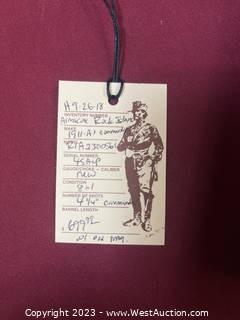 H9-26-18
INVENTORY NUMBER
Armscor Rock Island
MAKE
1911-A1 Command
MODEL
RIA2300561
SERIAL NUMBER
45 ACP
GAUGE/CHOKE - CALIBER
new
CONDITION
8+1
NUMBER OF SHOTS
4 1/4" command
BARREL LENGTH
$699.92
w/ one mag.
Copyright 2023 - www.WestAuction.com